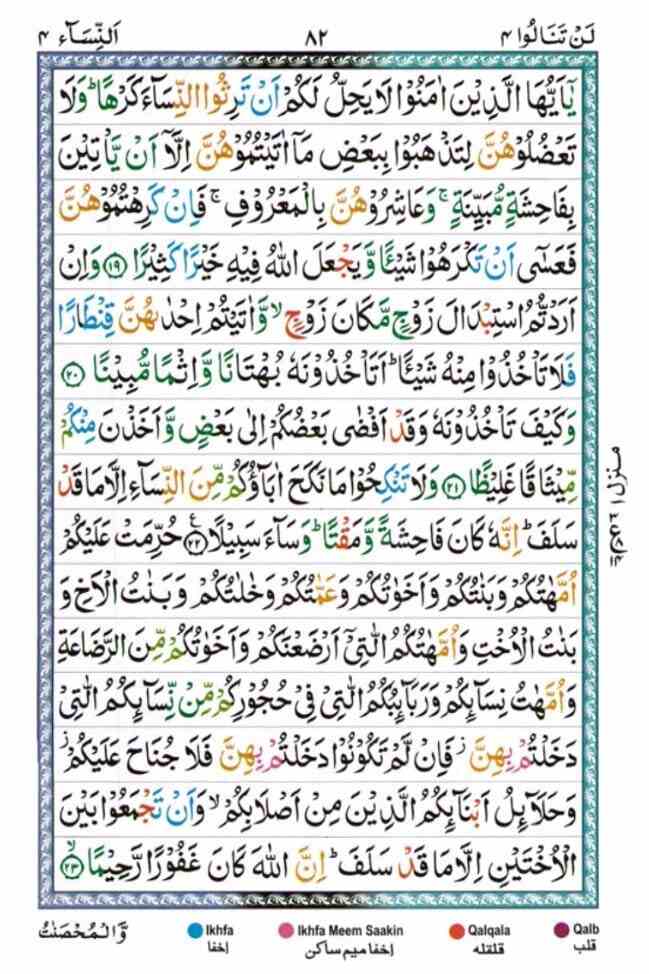 لَنْ تَنَالُوا ٤ ٨٢ اَلنِّسَآء ٤
يٰۤاَيُّهَا الَّذِيْنَ اٰمَنُوْا لَا يَحِلُّ لَكُمْ اَنْ تَرِثُوا النِّسَآءَ كَرْهًا ؕ وَلَا
تَعْضُلُوْهُنَّ لِتَذْهَبُوْا بِبَعْضِ مَاۤ اٰتَيْتُمُوْهُنَّ اِلَّاۤ اَنْ يَّاْتِيْنَ
بِفَاحِشَةٍ مُّبَيِّنَةٍ ۚ وَعَاشِرُوْهُنَّ بِالْمَعْرُوْفِ ۚ فَاِنْ كَرِهْتُمُوْهُنَّ
فَعَسٰۤى اَنْ تَكْرَهُوْا شَيْئًا وَّيَجْعَلَ اللّٰهُ فِيْهِ خَيْرًا كَثِيْرًا ۝١٩ وَاِنْ
اَرَدْتُّمُ اسْتِبْدَالَ زَوْجٍ مَّكَانَ زَوْجٍ ۙ وَّاٰتَيْتُمْ اِحْدٰىهُنَّ قِنْطَارًا
فَلَا تَاْخُذُوْا مِنْهُ شَيْئًا ؕ اَتَاْخُذُوْنَهٗ بُهْتَانًا وَّاِثْمًا مُّبِيْنًا ۝٢٠
وَكَيْفَ تَاْخُذُوْنَهٗ وَقَدْ اَفْضٰى بَعْضُكُمْ اِلٰى بَعْضٍ وَّاَخَذْنَ مِنْكُمْ
مِّيْثَاقًا غَلِيْظًا ۝٢١ وَلَا تَنْكِحُوْا مَا نَكَحَ اٰبَآؤُكُمْ مِّنَ النِّسَآءِ اِلَّا مَا قَدْ
سَلَفَ ؕ اِنَّهٗ كَانَ فَاحِشَةً وَّمَقْتًا ؕ وَسَآءَ سَبِيْلًا ۝٢٢ ع حُرِّمَتْ عَلَيْكُمْ
اُمَّهٰتُكُمْ وَبَنٰتُكُمْ وَاَخَوٰتُكُمْ وَعَمّٰتُكُمْ وَخٰلٰتُكُمْ وَبَنٰتُ الْاَخِ وَ
بَنٰتُ الْاُخْتِ وَاُمَّهٰتُكُمُ الّٰتِيْۤ اَرْضَعْنَكُمْ وَاَخَوٰتُكُمْ مِّنَ الرَّضَاعَةِ
وَاُمَّهٰتُ نِسَآئِكُمْ وَرَبَآئِبُكُمُ الّٰتِيْ فِيْ حُجُوْرِكُمْ مِّنْ نِّسَآئِكُمُ الّٰتِيْ
دَخَلْتُمْ بِهِنَّ ؗ فَاِنْ لَّمْ تَكُوْنُوْا دَخَلْتُمْ بِهِنَّ فَلَا جُنَاحَ عَلَيْكُمْ ؗ
وَحَلَآئِلُ اَبْنَآئِكُمُ الَّذِيْنَ مِنْ اَصْلَابِكُمْ ۙ وَاَنْ تَجْمَعُوْا بَيْنَ
الْاُخْتَيْنِ اِلَّا مَا قَدْ سَلَفَ ؕ اِنَّ اللّٰهَ كَانَ غَفُوْرًا رَّحِيْمًا ۝٢٣ ۙ
منزل ١
وَّالْمُحْصَنٰتُ
Ikhfa Ikhfa Meem Saakin Qalqala Qalb
إخفا إخفا ميم ساكن قلقله قلب